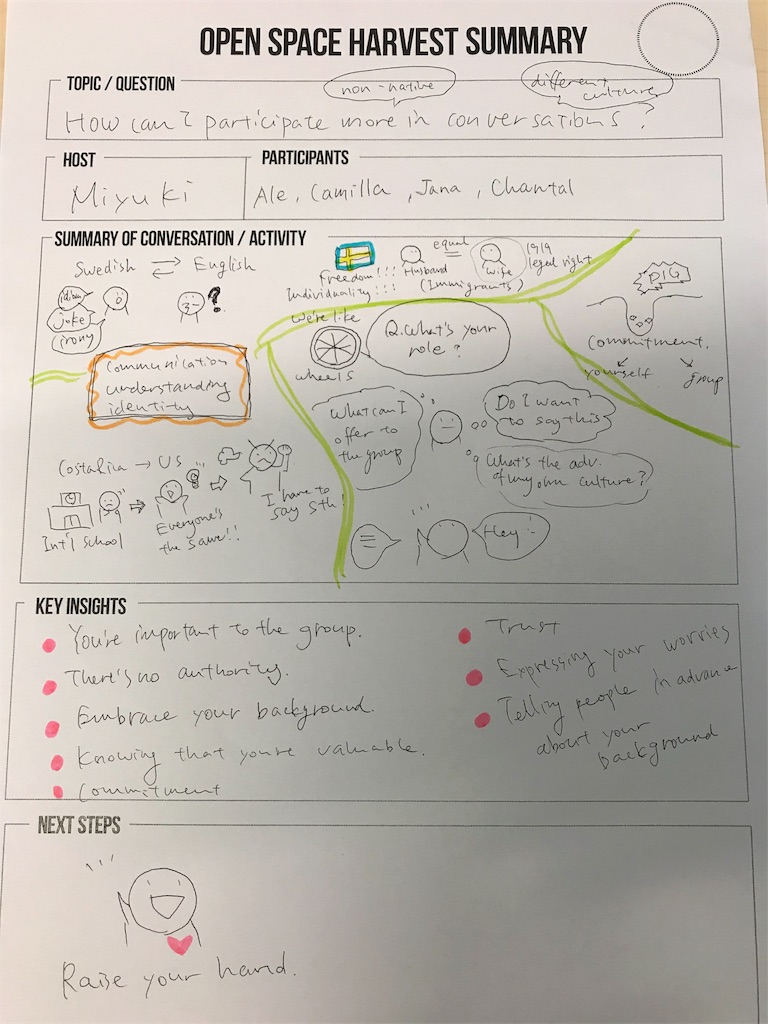 OPEN SPACE HARVEST SUMMARY
TOPIC / QUESTION
non-native
different
culture
How can I participate more in conversations?
HOST
Miyuki
PARTICIPANTS
Ale, Camilla, Jana, Chantal
SUMMARY OF CONVERSATION / ACTIVITY
Swedish ⇄ English
idiom
joke
irony
?
Freedom!!!
Individuality!!!
Husband
equal
wife
(Immigrants)
1919
legal right
DIG
Commitment.
yourself
group
Communication
understanding
identity
We're like
wheels
Q.What's your
role?
What can I
offer to
the group
Do I want
to say this
What's the adv.
of my own culture?
Hey!
Costa Rica → US
Int'l School
Everyone's
the same!!
I have to
say sth!
KEY INSIGHTS
You're important to the group.
There's no authority.
Embrace your background.
Knowing that you're valuable.
Commitment
Trust
Expressing your worries
Telling people in advance
about your
background
NEXT STEPS
Raise your hand.